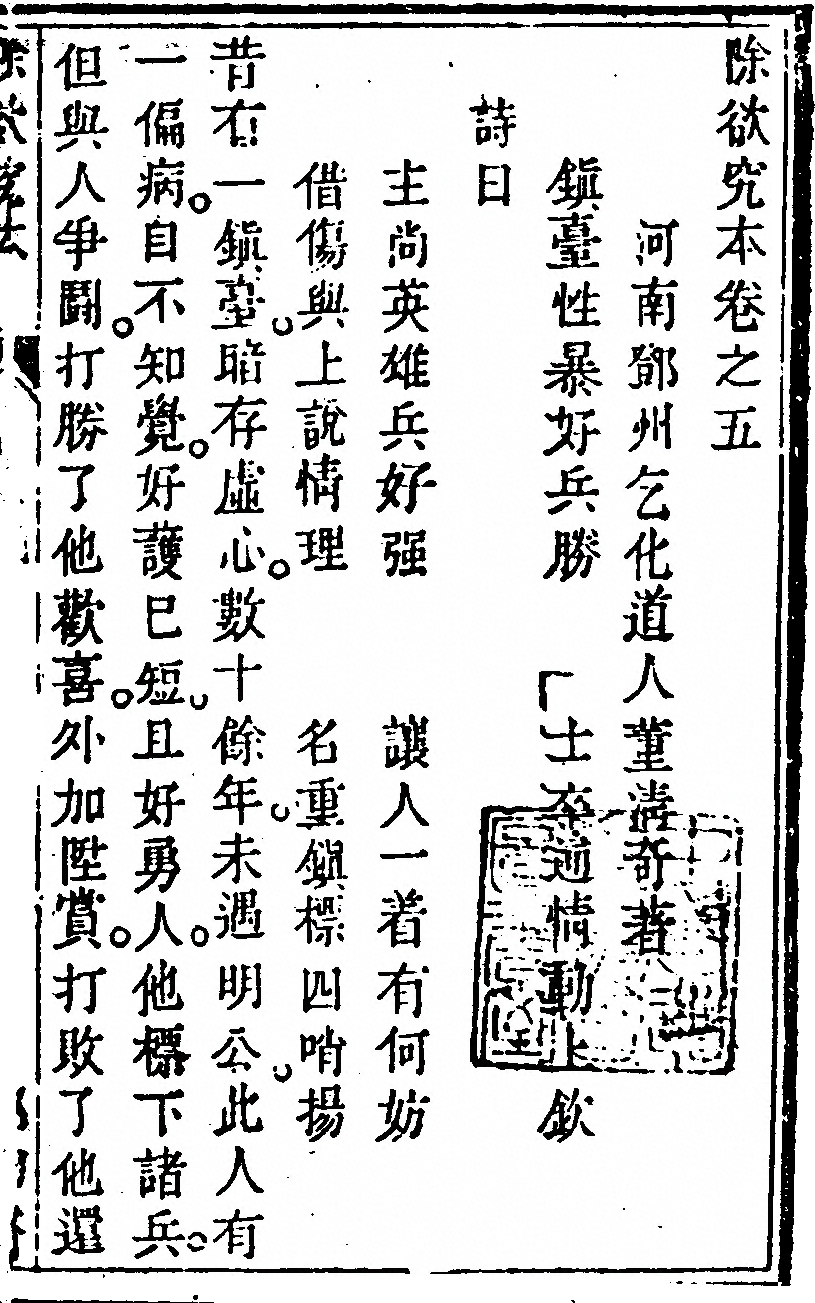 除欲究本卷之五
河南鄧州乞化道人董清奇著
鎮臺性暴好兵勝 士卒通情動止欽
詩曰
主尚英雄兵好强 讓人一着有何妨
借傷與上說情理 名重鎮標四哨揚
昔有一鎮臺暗存虛心數十餘年未遇明公此人有
一偏病。自不知覺。好護已短。且好勇人。他標下諸兵。
但與人爭鬪。打勝了他歡喜。外加陞賞。打敗了他還